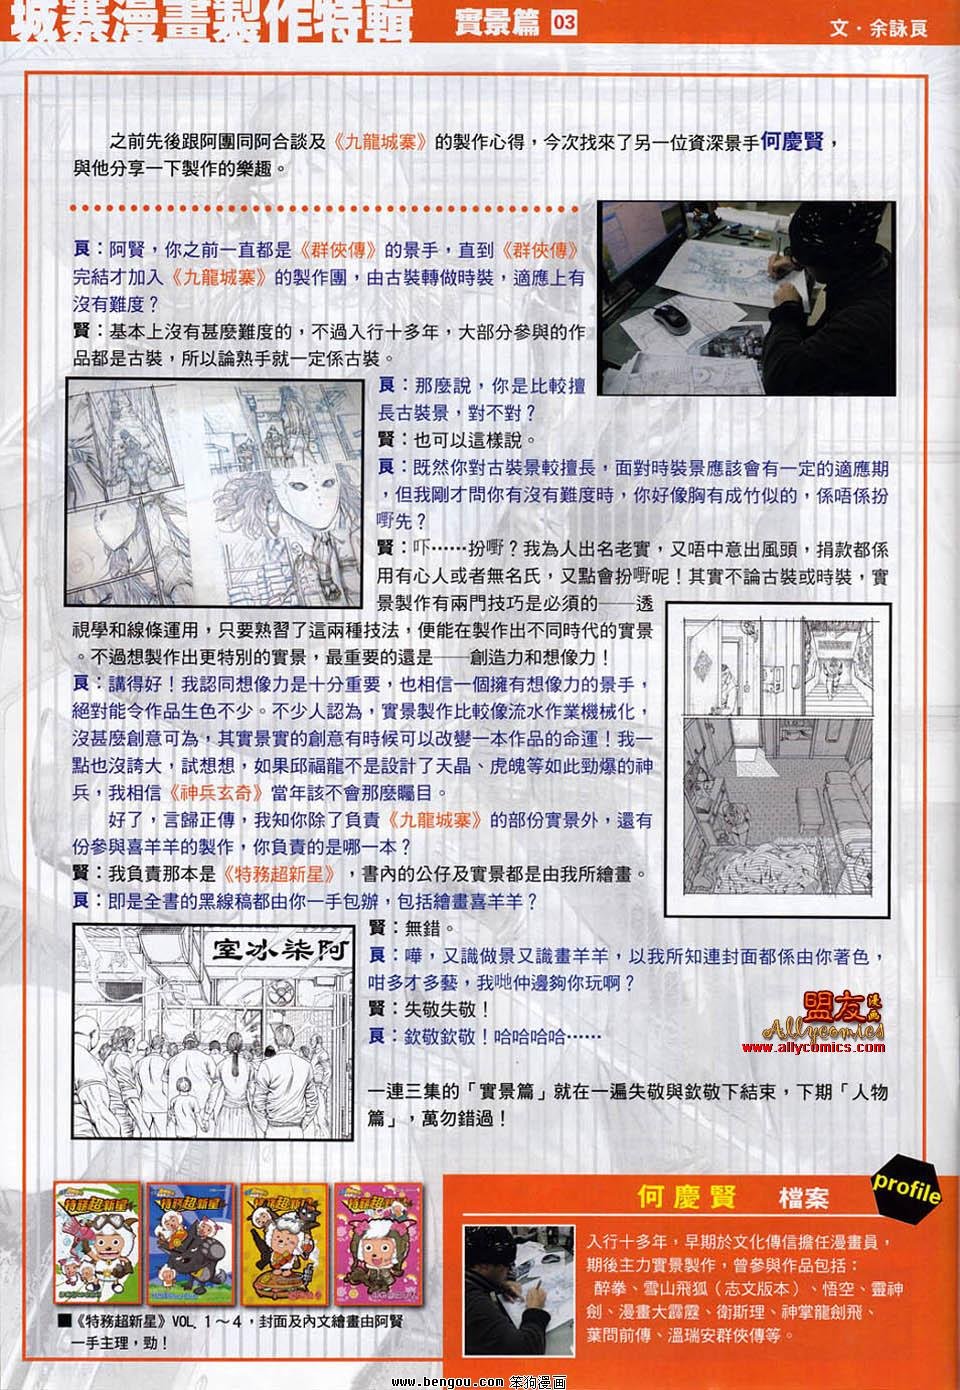 城寨漫畫製作特輯 實景篇 03
文・余詠莨
之前先後跟阿團同阿合談及《九龍城寨》的製作心得，今次找來了另一位資深景手何慶賢，
與他分享一下製作的樂趣。
莨：阿賢，你之前一直都是《群俠傳》的景手，直到《群俠傳》
完結才加入《九龍城寨》的製作團，由古裝轉做時裝，適應上有
沒有難度？
賢：基本上沒有甚麼難度的，不過入行十多年，大部分參與的作
品都是古裝，所以論熟手就一定係古裝。
莨：那麼說，你是比較擅
長古裝景，對不對？
賢：也可以這樣說。
莨：既然你對古裝景較擅長，面對時裝景應該會有一定的適應期
，但我剛才問你有沒有難度時，你好像胸有成竹似的，係唔係扮
嘢先？
賢：吓⋯⋯扮嘢？我為人出名老實，又唔中意出風頭，捐款都係
用有心人或者無名氏，又點會扮嘢呢！其實不論古裝或時裝，實
景製作有兩門技巧是必須的──透
視學和線條運用，只要熟習了這兩種技法，便能在製作出不同時代的實景
。不過想製作出更特別的實景，最重要的還是──創造力和想像力！
莨：講得好！我認同想像力是十分重要，也相信一個擁有想像力的景手，
絕對能令作品生色不少。不少人認為，實景製作比較像流水作業機械化，
沒甚麼創意可為，其實景實的創意有時候可以改變一本作品的命運！我一
點也沒誇大，試想想，如果邱福龍不是設計了天晶、虎魄等如此勁爆的神
兵，我相信《神兵玄奇》當年該不會那麼矚目。
好了，言歸正傳，我知你除了負責《九龍城寨》的部份實景外，還有
份參與喜羊羊的製作，你負責的是哪一本？
賢：我負責那本是《特務超新星》，書內的公仔及實景都是由我所繪畫。
莨：即是全書的黑線稿都由你一手包辦，包括繪畫喜羊羊？
室冰柒阿
賢：無錯。
莨：嘩，又識做景又識畫羊羊，以我所知連封面都係由你著色，
咁多才多藝，我哋仲邊夠你玩啊？
賢：失敬失敬！
莨：欽敬欽敬！哈哈哈哈⋯⋯
一連三集的「實景篇」就在一遍失敬與欽敬下結束，下期「人物
篇」，萬勿錯過！
盟友漫畫
Allycomics
www.allycomics.com
特務超新星
特務超新星
特務超新星
特務超新星
■《特務超新星》VOL. 1～4，封面及內文繪畫由阿賢
一手主理，勁！
何慶賢 檔案
profile
入行十多年，早期於文化傳信擔任漫畫員，
期後主力實景製作，曾參與作品包括：
醉拳、雪山飛狐（志文版本）、悟空、靈神
劍、漫畫大霹靂、衛斯理、神掌龍劍飛、
葉問前傳、溫瑞安群俠傳等。
www.bengou.com 笨狗漫画